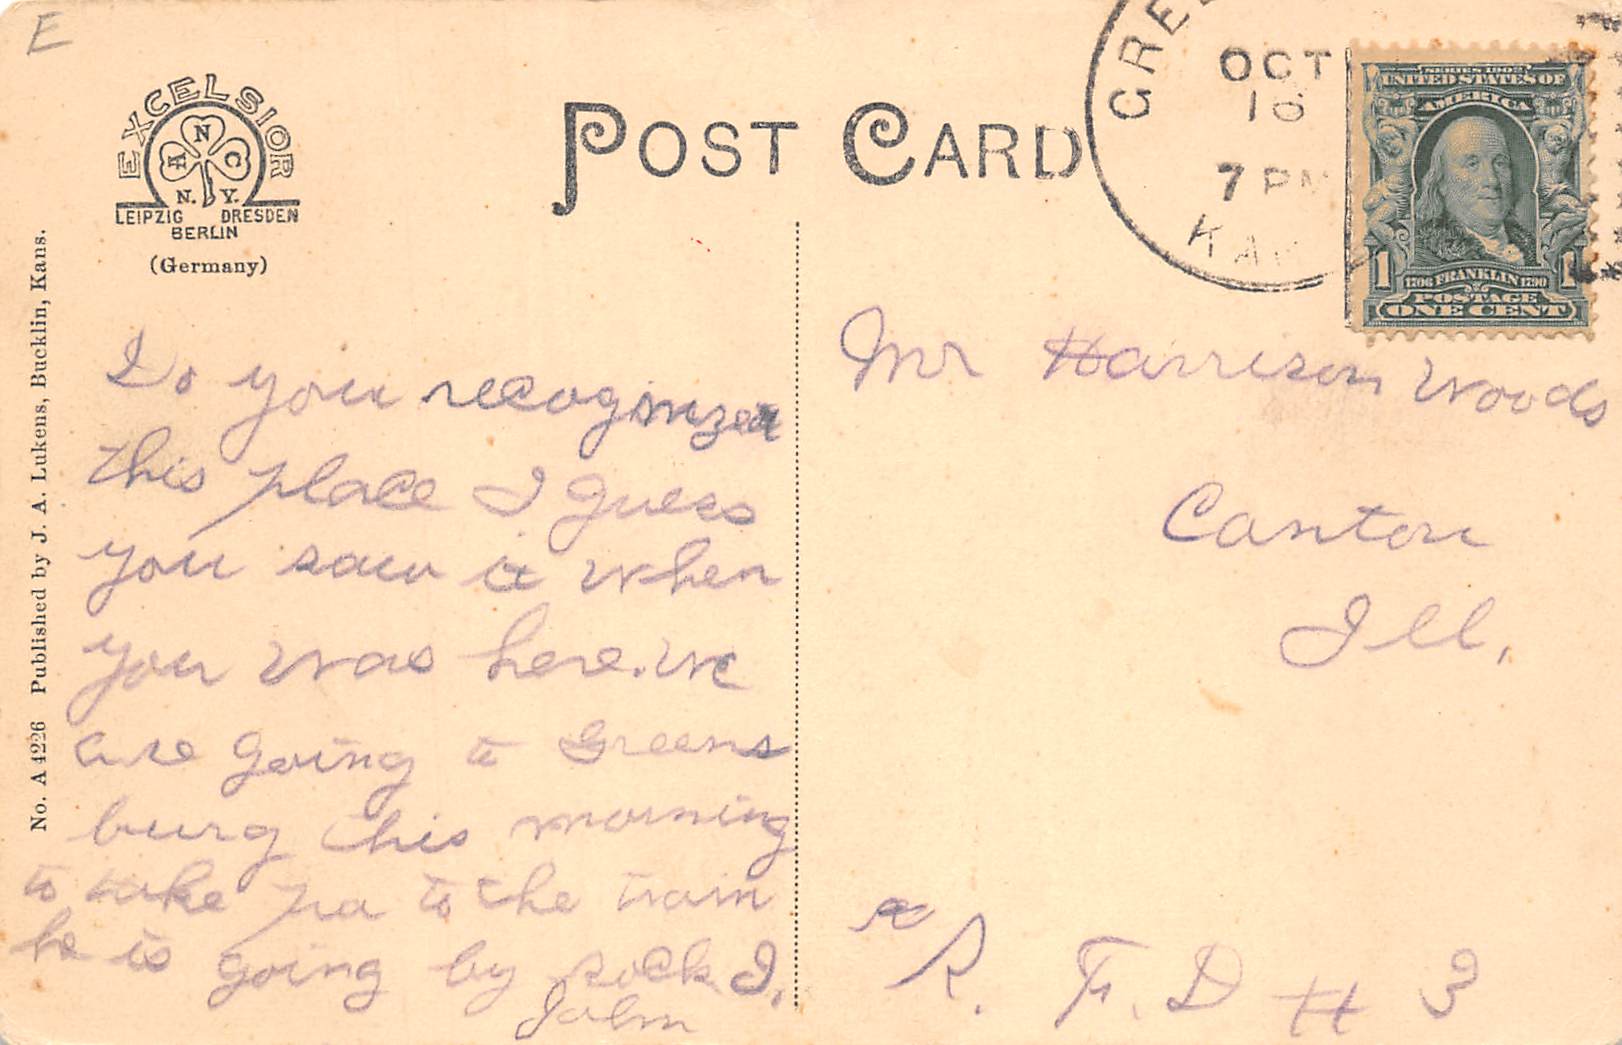 E
EXCELSIOR
A N C
N. Y.
LEIPZIG DRESDEN
BERLIN
(Germany)
POST CARD
OCT
16
7 PM
SERIES 1902
UNITED STATES OF
AMERICA
1 1706 FRANKLIN 1790 1
POSTAGE
ONE CENT
No. A 4226 Published by J. A. Lukens, Bucklin, Kans.
Do you recognize
this place I guess
you saw it when
you was here. we
are going to Greens
burg this morning
to take pa to the train
he is going by Rock I.
John
Mr Harrison Woods
Canton
Ill.
R. F. D # 3